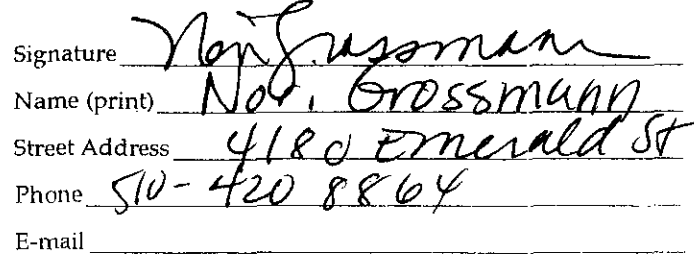 Signature Nori Grossmann
Name (print) Nori Grossmann
Street Address 4180 Emerald St
Phone 510-420 8864
E-mail